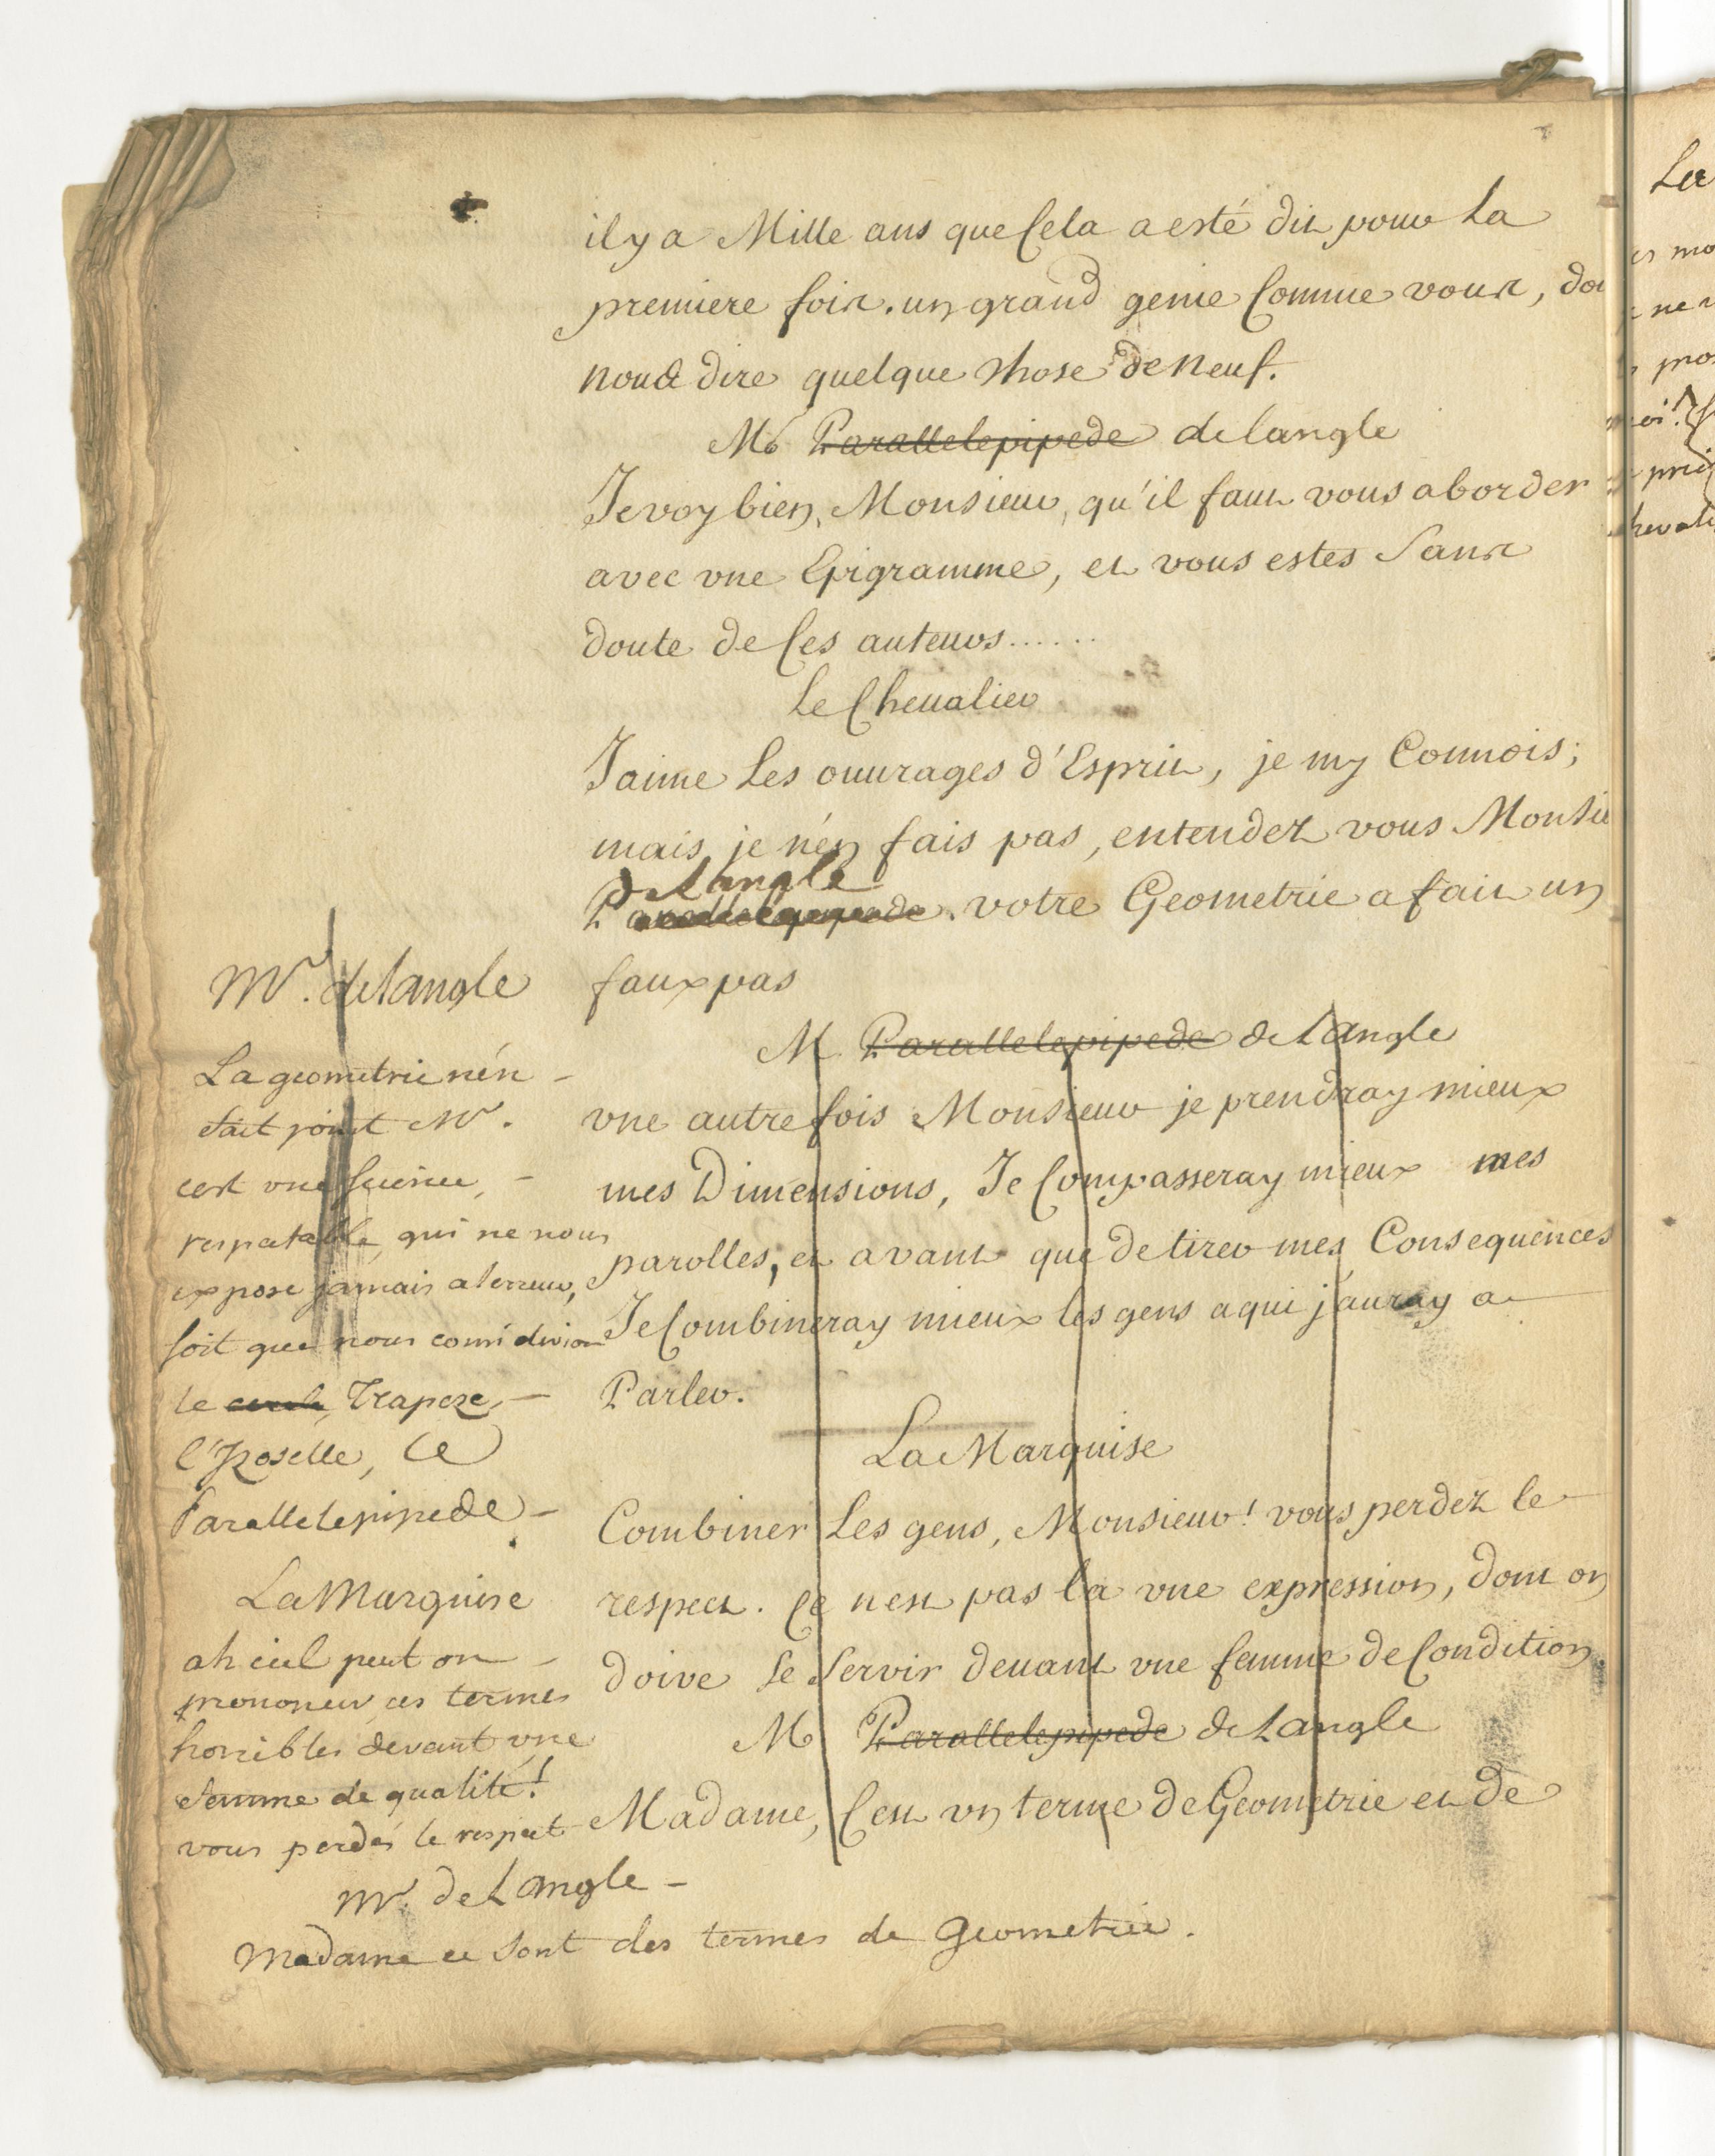 il y a Mille ans que Cela a esté dit pour La
premiere fois. un grand genie Comme vous, doi
nous dire quelque chose de neuf.
Mr Parallelepipede de langle
Je voy bien, Monsieur, qu'il faut vous aborder
avec vne Epigramme, et vous estes Sans
doute de Ces auteurs......
Le Cheualier
J'aime Les ouurages d'Esprit, je my Connois;
mais je n'en fais pas, entendez vous Monsie
de Langle
Parallelepipede. votre Geometrie a fait un
faux pas
M Parallelepipede de Langle
vne autre fois Monsieur je prendray mieux
mes Dimensions, Je Compasseray mieux mes
parolles, et avant que de tirer mes Consequences
Je Combineray mieux les gens a qui j'auray a
Parler.
La Marquise
Combiner Les gens, Monsieur! vous perdez le
respect. Ce n'est pas la vne expression, dont on
doive Se Servir deuant vne femme de Condition.
Mr Parallelepipede de Langle
Madame, C'est vn terme de Geometrie et de
Mr. de langle
La geometrie n'en
fait point Mr.
cest vne Science,
respectable, qui ne nous
expose jamais a lerreur,
soit que nous considerion
le cercle, Trapeze,
l'Izoselle, le
Parallelepipede
La Marquise
ah ciel peut on
prononcer ces termes
horribles devant vne
femme de qualité!
vous perdés le respect
Mr. de Langle
Madame ce Sont des termes de Geometrie.
La
es mo
ne
pro
moi!
prie
hevali